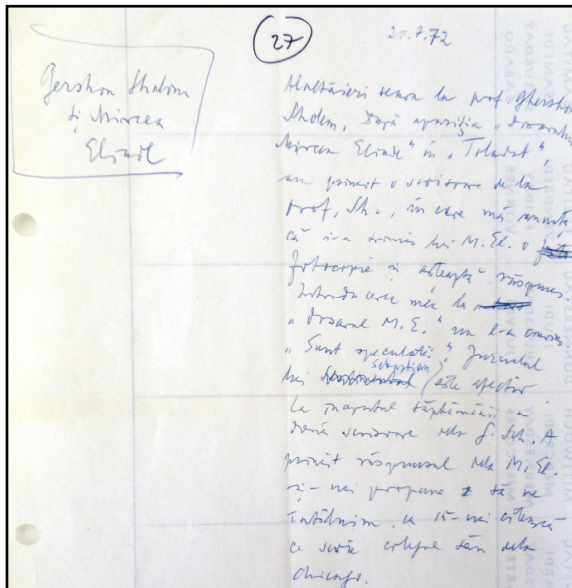 27
20.7.72
Gershon Sholem
și Mircea
Eliade
Alaltăieri seara la prof. Ghershon
Sholem. După apariția „dosarului
Mircea Eliade" în „Toladot",
am primit o scrisoare de la
prof. Sh., în care mă anunța
că i-a trimis lui M. El. o
fotocopie și așteaptă răspuns.
Introducerea mea la
„dosarul M.E." nu l-a convins.
„Sunt speculații." Jurnalul
lui Sebastian este afectiv
La începutul săptămânii a
doua scrisoare dela G. Sch. A
primit răspunsul dela M. El.
și-mi propune să ne
întâlnim, ca să-mi citească
ce scrie colegul său dela
Chicago.